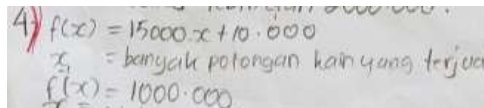 4) f(x) = 15000.x + 10.000
x = banyak potongan kain yang
f(x) = 1000.000